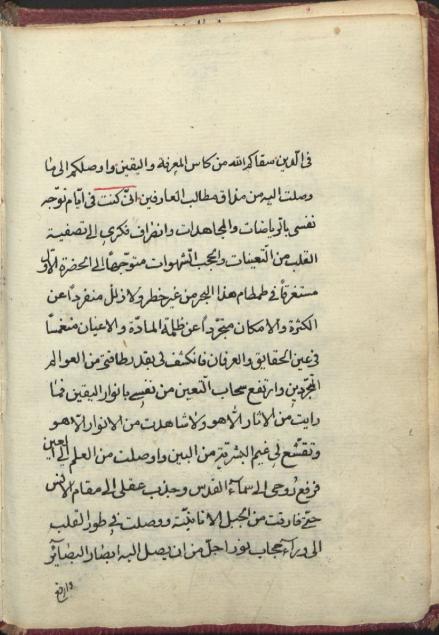 في الدين سقاكم الله من كاس المعرفة واليقين واوصلكم الى ما
وصلت اليه من مذاق مطالب العارفين انى كنت فى ايام توجه
نفسى بالرياضات والمجاهدات وانصراف فكرى الى تصفية
القلب من التعينات والحجب الشهوات متوجها الى الحضرة الاول
مستغرقا فى طمطام هذا البحر من غير خطر ولا زلل منفردا عن
الكثرة والامكان متجردا عن ظلمة المادة والاعيان منغمسا
فى عين الحقايق والعرفان فانكشف لى بقدر طاقتى من العوالم
المجردين وارتفع سحاب التعين من نفسى بانوار اليقين فما
رايت من الاثار الا هو ولا شاهدت من الانوار الا هو
وتقشع لى غيم البشرية من البين واوصلت من العلم الى العين
فرفع روحى الى سماء القدس وجذب عقلى الى مقام الانس
حتى فارقت من الجبل الانانية ووصلت فى طور القلب
الى وراء حجاب نور اجل من ان يصل اليه ابصار البصائر
وارفع